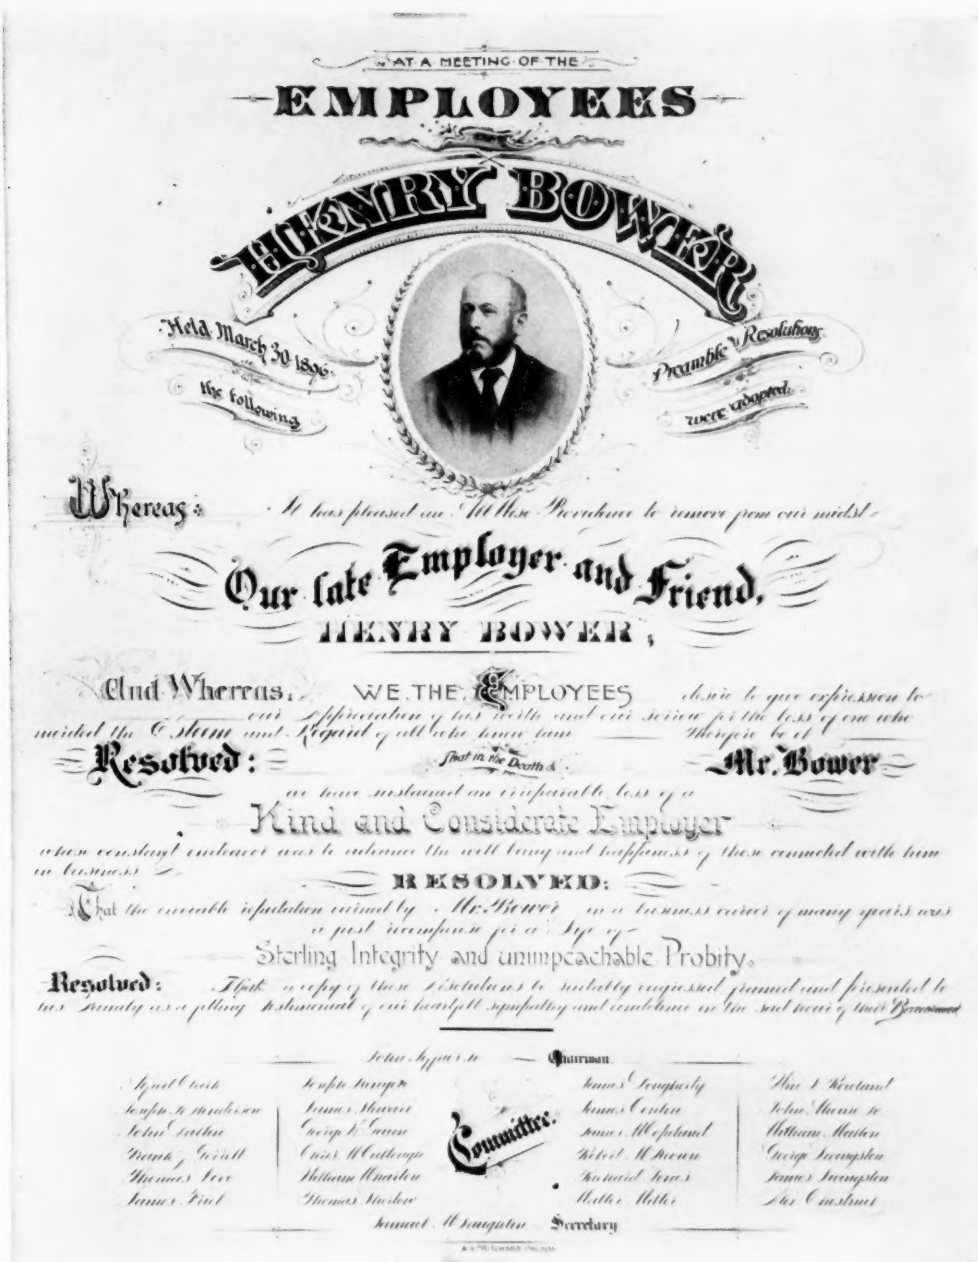 AT A MEETING OF THE
EMPLOYEES
HENRY BOWER
Held March 30 1896.
the following
Preamble & Resolutions
were adopted:
Whereas: It has pleased an All Wise Providence to remove from our midst
Our late Employer and Friend,
HENRY BOWER;
And Whereas, WE THE EMPLOYEES desire to give expression to
our appreciation of his worth and our sorrow for the loss of one who
merited the Esteem and Regard of all who knew him Therefore be it
Resolved: That in the Death of Mr. Bower
we have sustained an irreparable loss of a
Kind and Considerate Employer
whose constant endeavor was to advance the well being and happiness of those connected with him
in business
RESOLVED:
That the enviable reputation earned by Mr. Bower in a business career of many years was
a just recompense for a life of
Sterling Integrity and unimpeachable Probity.
Resolved: That a copy of these resolutions be suitably engrossed framed and presented to
his family as a fitting testimonial of our heartfelt sympathy and condolence in the sad hour of their Bereavement
John Chairman
James Dougherty
Joseph Henderson James Stewart James
John George William
Frank Robert George Livingston
Thomas William Wharton Richard Jones James Livingston
James Thomas Walter Miller
Committee.
Samuel Secretary